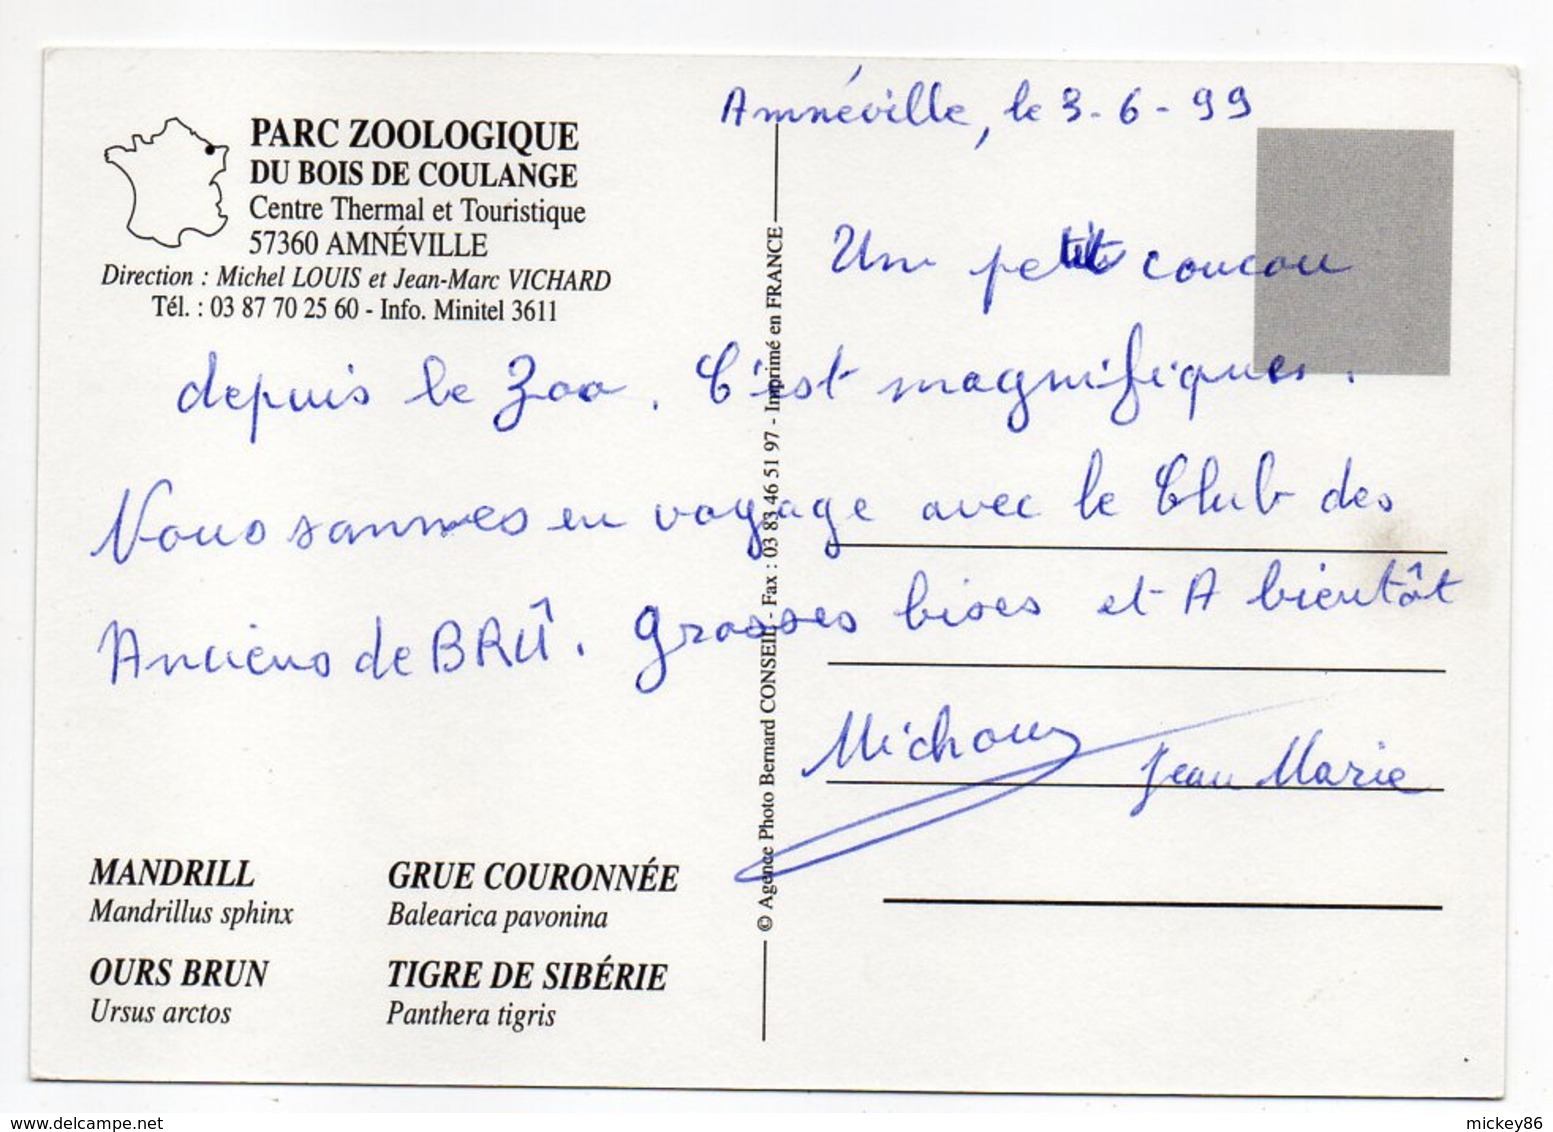 PARC ZOOLOGIQUE
DU BOIS DE COULANGE
Centre Thermal et Touristique
57360 AMNÉVILLE
Direction : Michel LOUIS et Jean-Marc VICHARD
Tél. : 03 87 70 25 60 - Info. Minitel 3611
Amnéville, le 3-6-99
Un petit coucou
depuis le Zoo. C'est magnifique.
Nous sommes en voyage avec le Club des
Anciens de BRÛ. Grosses bises et A bientôt
Michou
Jean Marie
© Agence Photo Bernard CONSEIL - Fax : 03 83 46 51 97 - Imprimé en FRANCE
MANDRILL
Mandrillus sphinx
GRUE COURONNÉE
Balearica pavonina
OURS BRUN
Ursus arctos
TIGRE DE SIBÉRIE
Panthera tigris
delcampe.net
mickey86